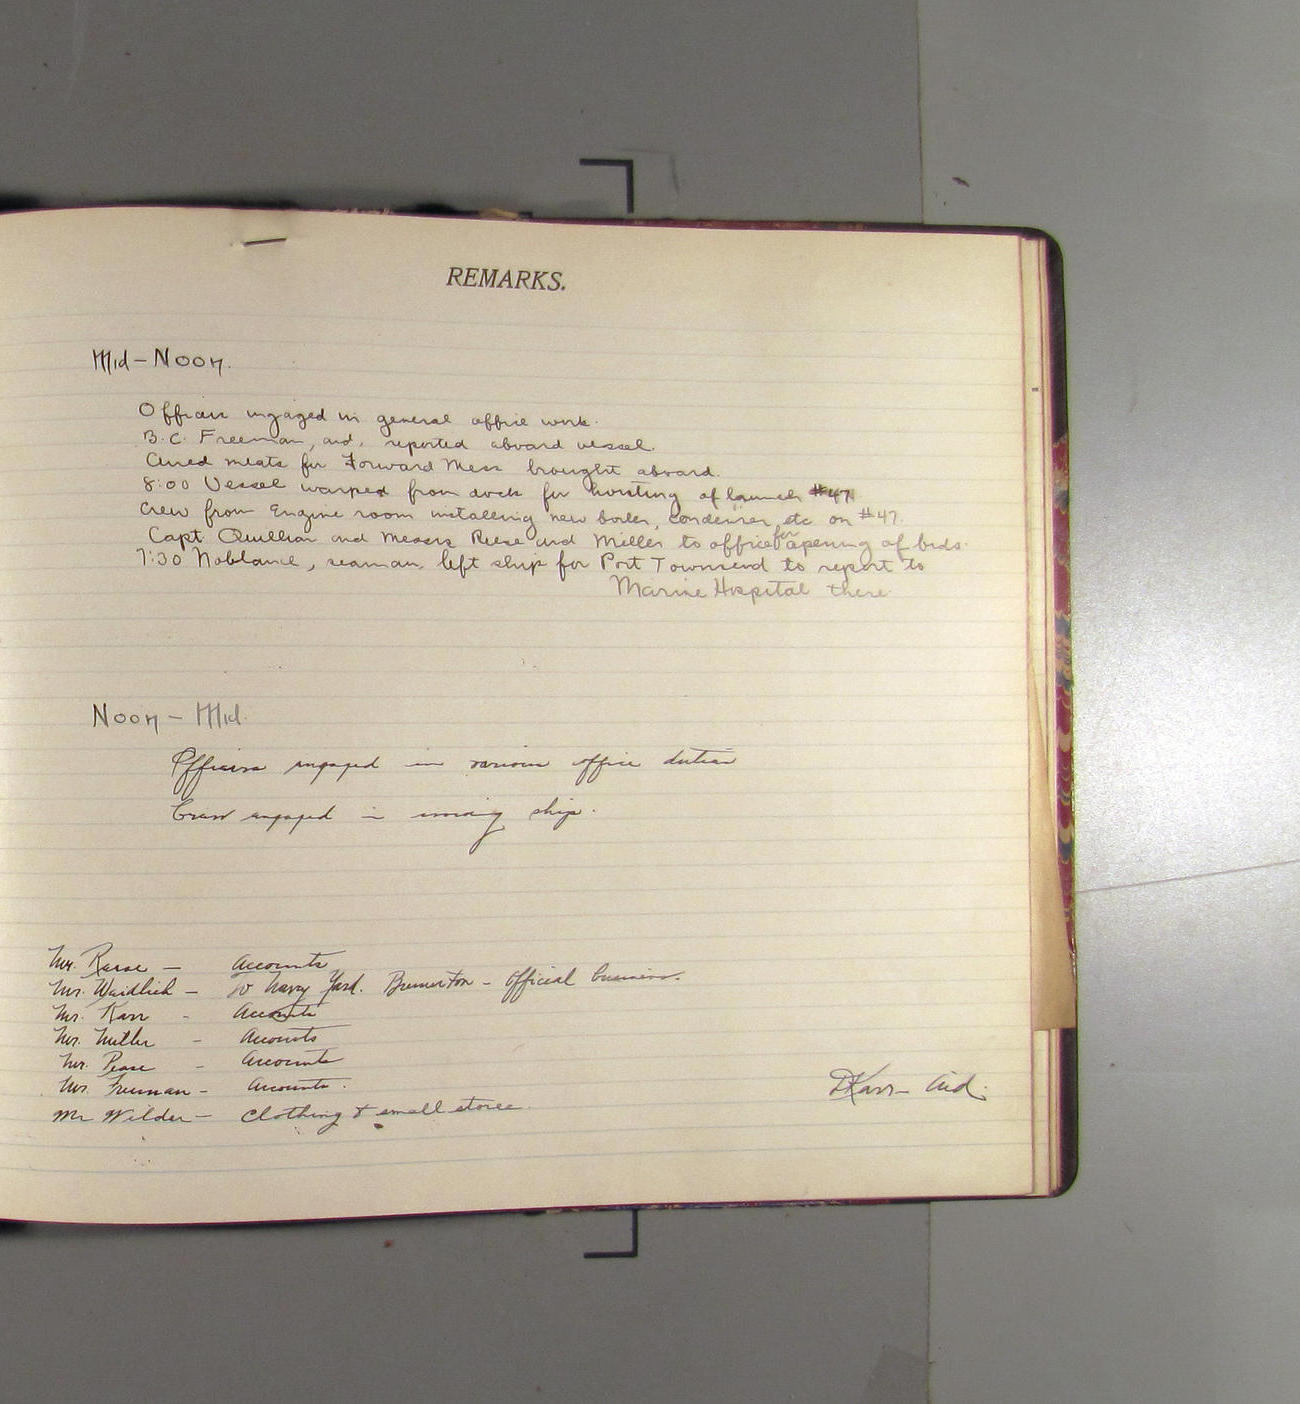 REMARKS.
Mid - Noon.
Officers engaged in general office work.
B.C. Freeman, aid, reported aboard vessel.
Cured meats for Forward Mess brought aboard.
8:00 Vessel warped from dock for hoisting of launch #47
Crew from Engine room installing new boiler, condenser, etc on #47.
Capt. Quillian and Messrs Reese and Miller to office for opening of bids.
7:30 Noblance, seaman, left ship for Port Townsend to report to
Marine Hospital there
Noon - Mid.
Officers engaged in various office duties
Crew engaged in ship.
Mr. Reese - Accounts
Mr. Waidlich - To Navy Yard. Bremerton - Official business.
Mr. Karr - Accounts
Mr. Miller - Accounts
Mr. Pease - Accounts
Mr. Freeman - Accounts.
Mr Wilder - Clothing & small stores.
DKarr - Aid.